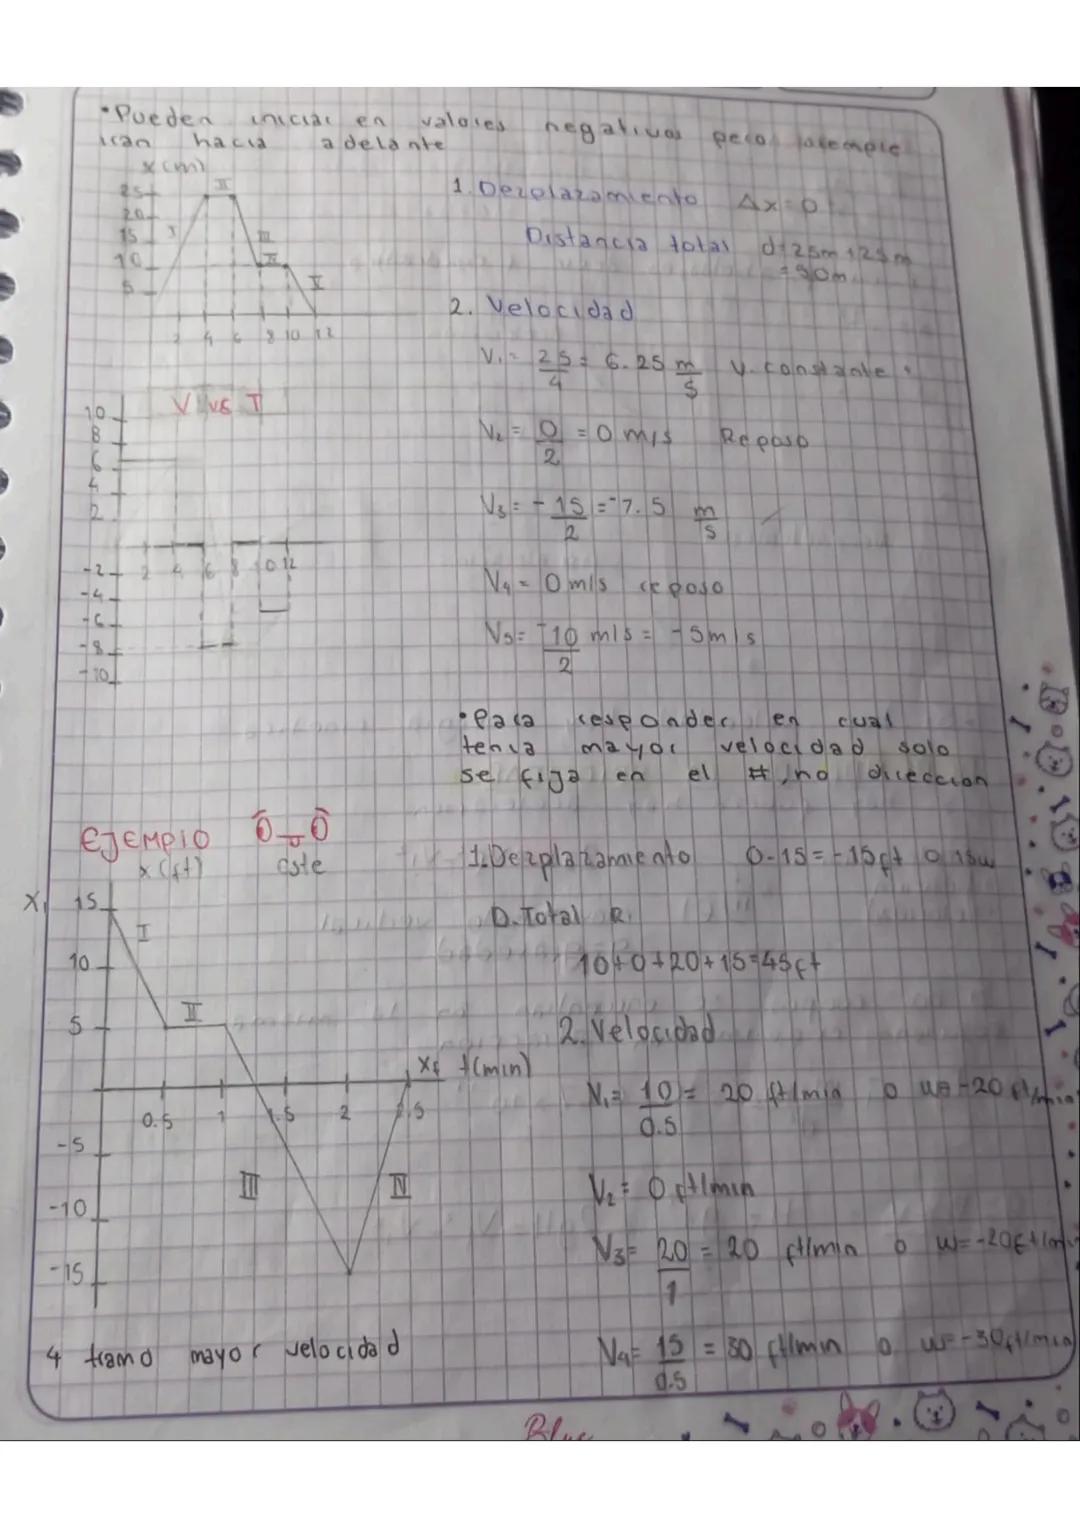 •Pueden iniciar en valores negativos pero siempre
iran hacia adelante
x(m)
25
20
15
10
5
I
II
III
IV
V
2 4 6 8 10 12
1. Dezplazamiento Δx=0
Distancia total d=25m+25m
=50m
2. Velocidad
V₁= 25/4 = 6.25 m/s V. constante
V₂= 0/2 = 0 m/s Reposo
V₃= -15/2 = -7.5 m/s
V₄= 0 m/s reposo
V₅= -10/2 m/s = -5m/s
V vs T
10
8
6
4
2
-2
-4
-6
-8
-10
2 4 6 8 10 12
•Para responder en cual
tenia mayor velocidad solo
se fija en el #, no direccion
EJEMPlO Ō_Ō
x(ft) este
X₁ 15
10
5
-5
-10
-15
I
II
III
IV
Xf t(min)
0.5 1 1.5 2 2.5
1. Dezplazamiento 0-15=-15ft o 15w
D. Total R.
10+0+20+15=45ft
2. Velocidad
V₁= 10/0.5 = 20 ft/min o w=-20 ft/min
V₂= 0 ft/min
V₃= 20/1 = 20 ft/min o w=-20ft/min
V₄= 15/0.5 = 30 ft/min o w=-30ft/min
4 tramo mayor velocidad
Blue